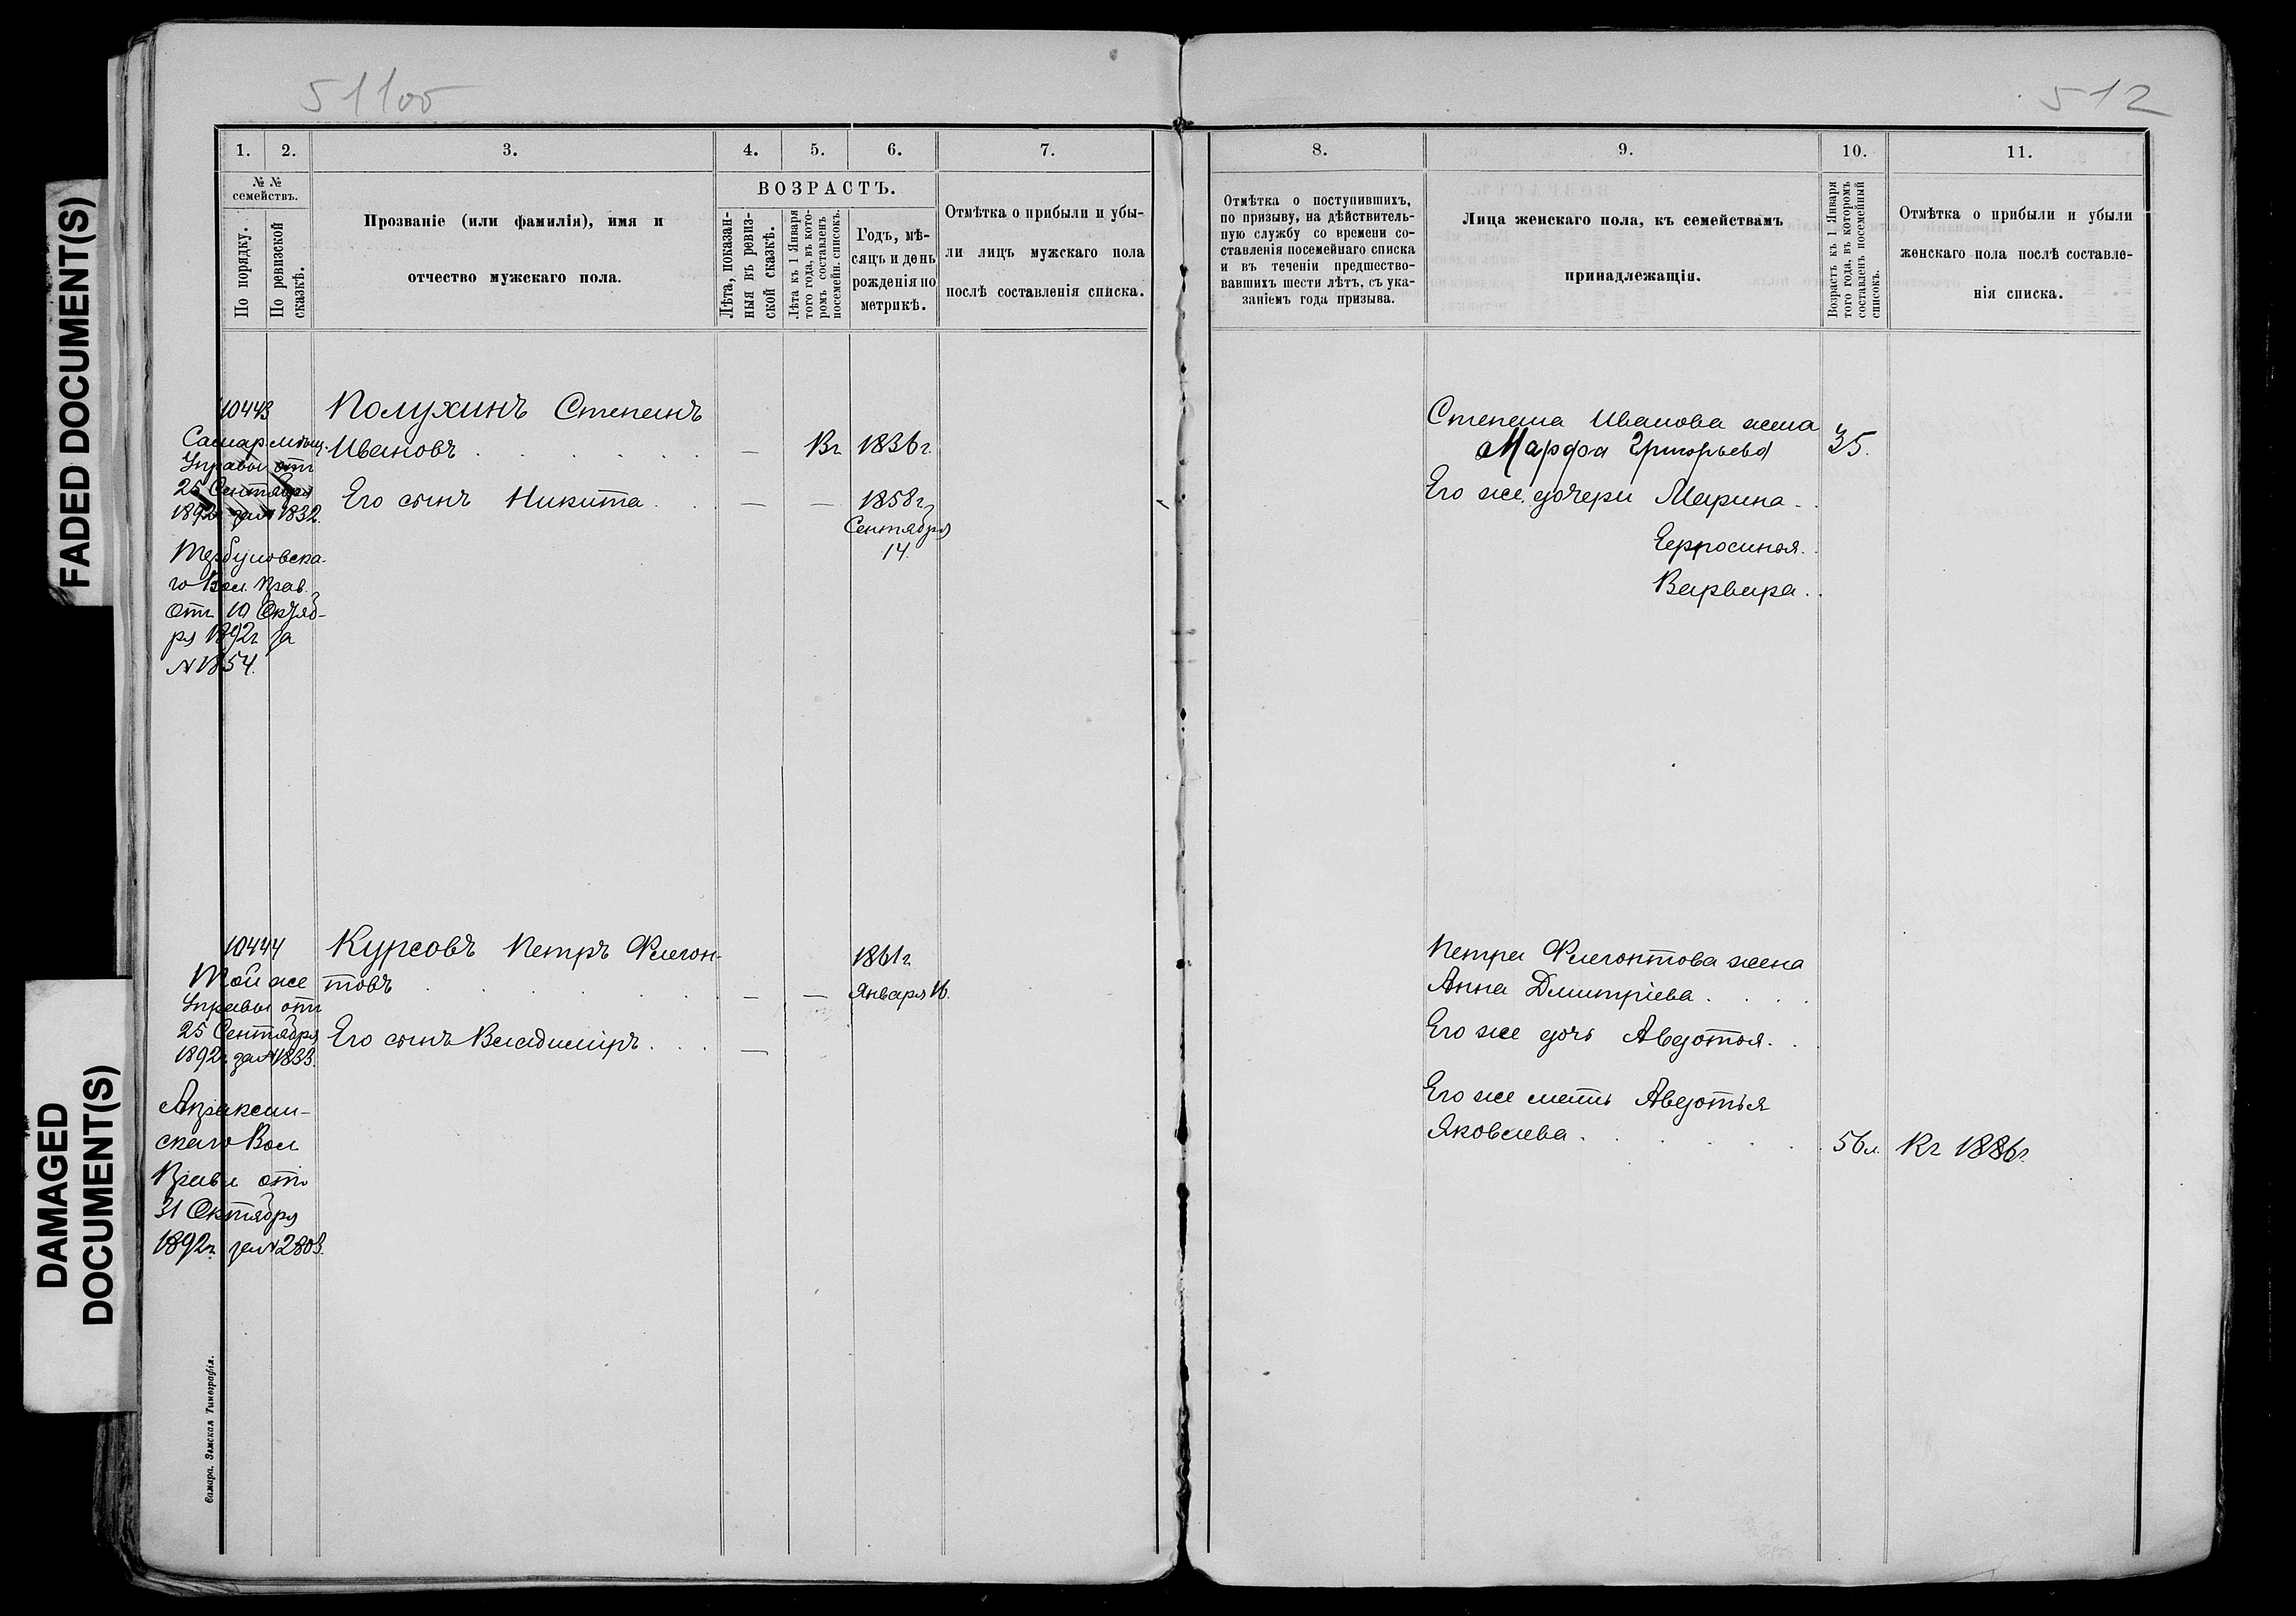 511об
512
FADED DOCUMENT(S)
DAMAGED
DOCUMENT(S)
1.
2.
3.
4.
5.
6.
7.
№ №
семействъ.
По порядку.
По ревизской
сказкѣ.
Прозваніе (или фамилія), имя и
отчество мужскаго пола.
ВОЗРАСТЪ.
Лѣта, показан-
ныя въ ревиз-
ской сказкѣ.
Лѣта къ 1 Января
того года, въ кото-
ромъ составленъ
посемейн. списокъ.
Годъ, мѣ-
сяцъ и день
рожденія по
метрикѣ.
Отмѣтка о прибыли и убы-
ли лицъ мужскаго пола
послѣ составленія списка.
10443
Самар. мѣщ.
Управы отъ
25 Сентября
1892г. за № 1832.
го Вол. Прав.
отъ 10 Октяб-
ря 1892г. за
№ 1854.
Полухинъ Степанъ
Ивановъ — Вг 1836г.
Его сынъ Никита — — 1858г.
Сентября
14.
10444
Той же
Управы отъ
25 Сентября
1892г. за № 1833.
Апраксин-
скаго Вол.
Правл. отъ
31 Октября
1892г. за № 2803.
Курсовъ Петръ Флегон-
товъ — — 1861г.
Января 16.
Его сынъ Владиміръ —
Самара. Земская Типографія.
8.
9.
10.
11.
Отмѣтка о поступившихъ,
по призыву, на дѣйствитель-
ную службу со времени со-
ставленія посемейнаго списка
и въ теченіи предшество-
вавшихъ шести лѣтъ, съ ука-
заніемъ года призыва.
Лица женскаго пола, къ семействамъ
принадлежащія.
Возрастъ къ 1 Января
того года, въ которомъ
составленъ посемейный
списокъ.
Отмѣтка о прибыли и убыли
женскаго пола послѣ составле-
нія списка.
Степана Иванова жена
Марфа Григорьева 35.
Его же дочери Марина
Ефросинья.
Варвара.
Петра Флегонтова жена
Анна Дмитріева
Его же дочь Авдотья.
Его же мать Авдотья
Яковлева 56 л. Кг 1886г.